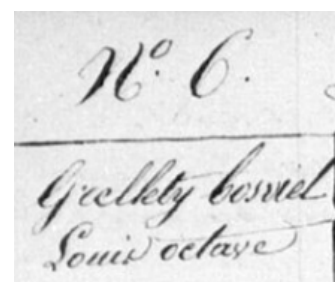 N.º 6.
Grellety bosviel
Louis octave